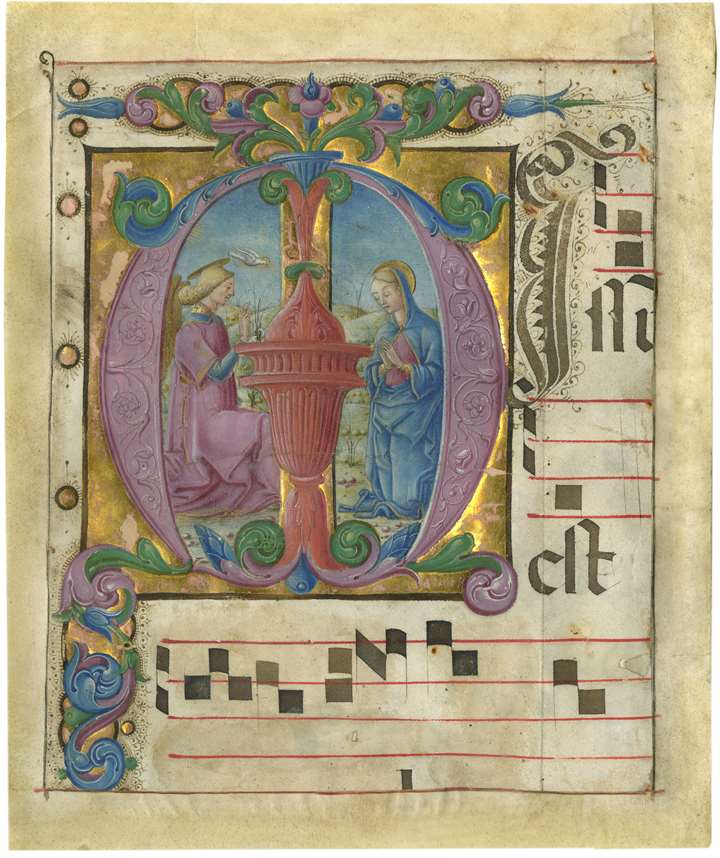 M I
est